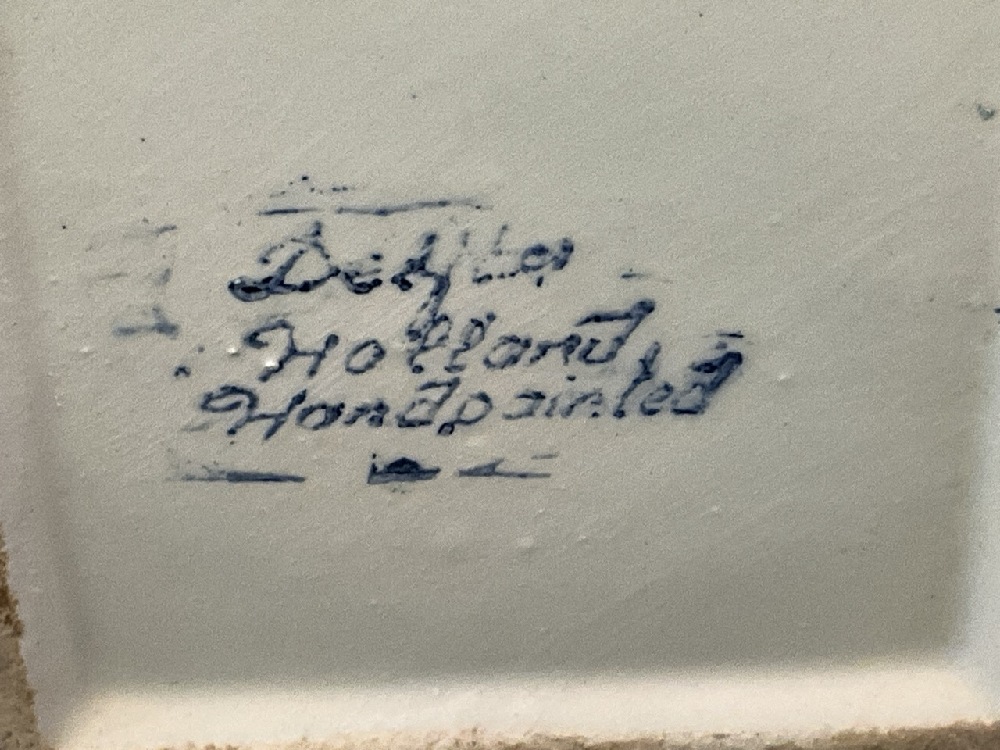 Delfter
Holland
Handpainted